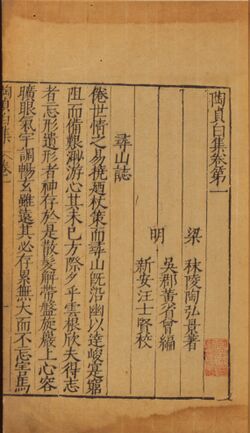 陶貞白集卷第一
梁 秣陵陶弘景著
吳郡黃省會編
明
新安汪士賢校
尋山誌
倦世情之易撓廼杖策而尋山旣沿幽以達峻寔窮
阻而備艱渺游心其未已方際夕乎雲根欣夫得志
者忘形遺形者神存於是散髮解帶盤旋巖上心容
曠眼氣宇調暢玄雖遠其必存累無大而不忘害馬
陶貞白集 卷一